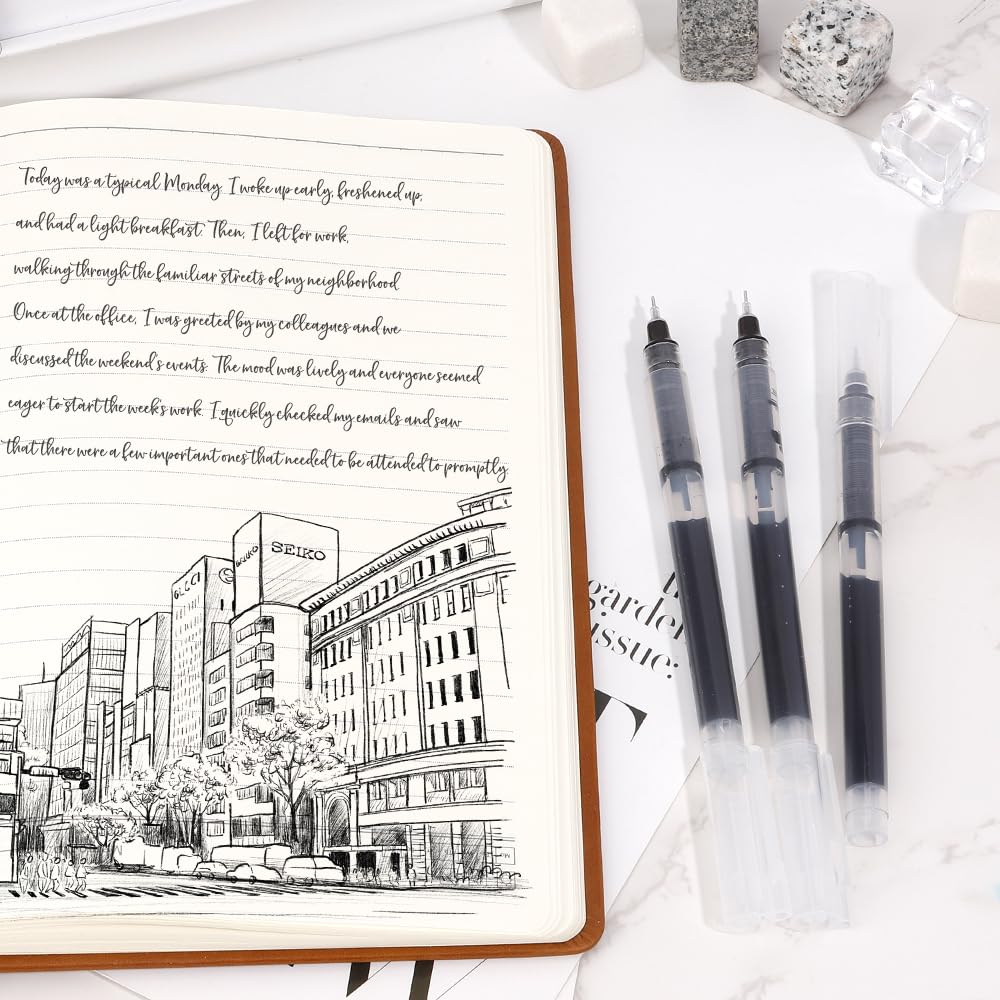 Today was a typical Monday. I woke up early, freshened up,
and had a light breakfast. Then, I left for work,
walking through the familiar streets of my neighborhood
Once at the office, I was greeted by my colleagues and we
discussed the weekend's events. The mood was lively and everyone seemed
eager to start the week's work. I quickly checked my emails and saw
that there were a few important ones that needed to be attended to promptly.
SEIKO
garden
issue: